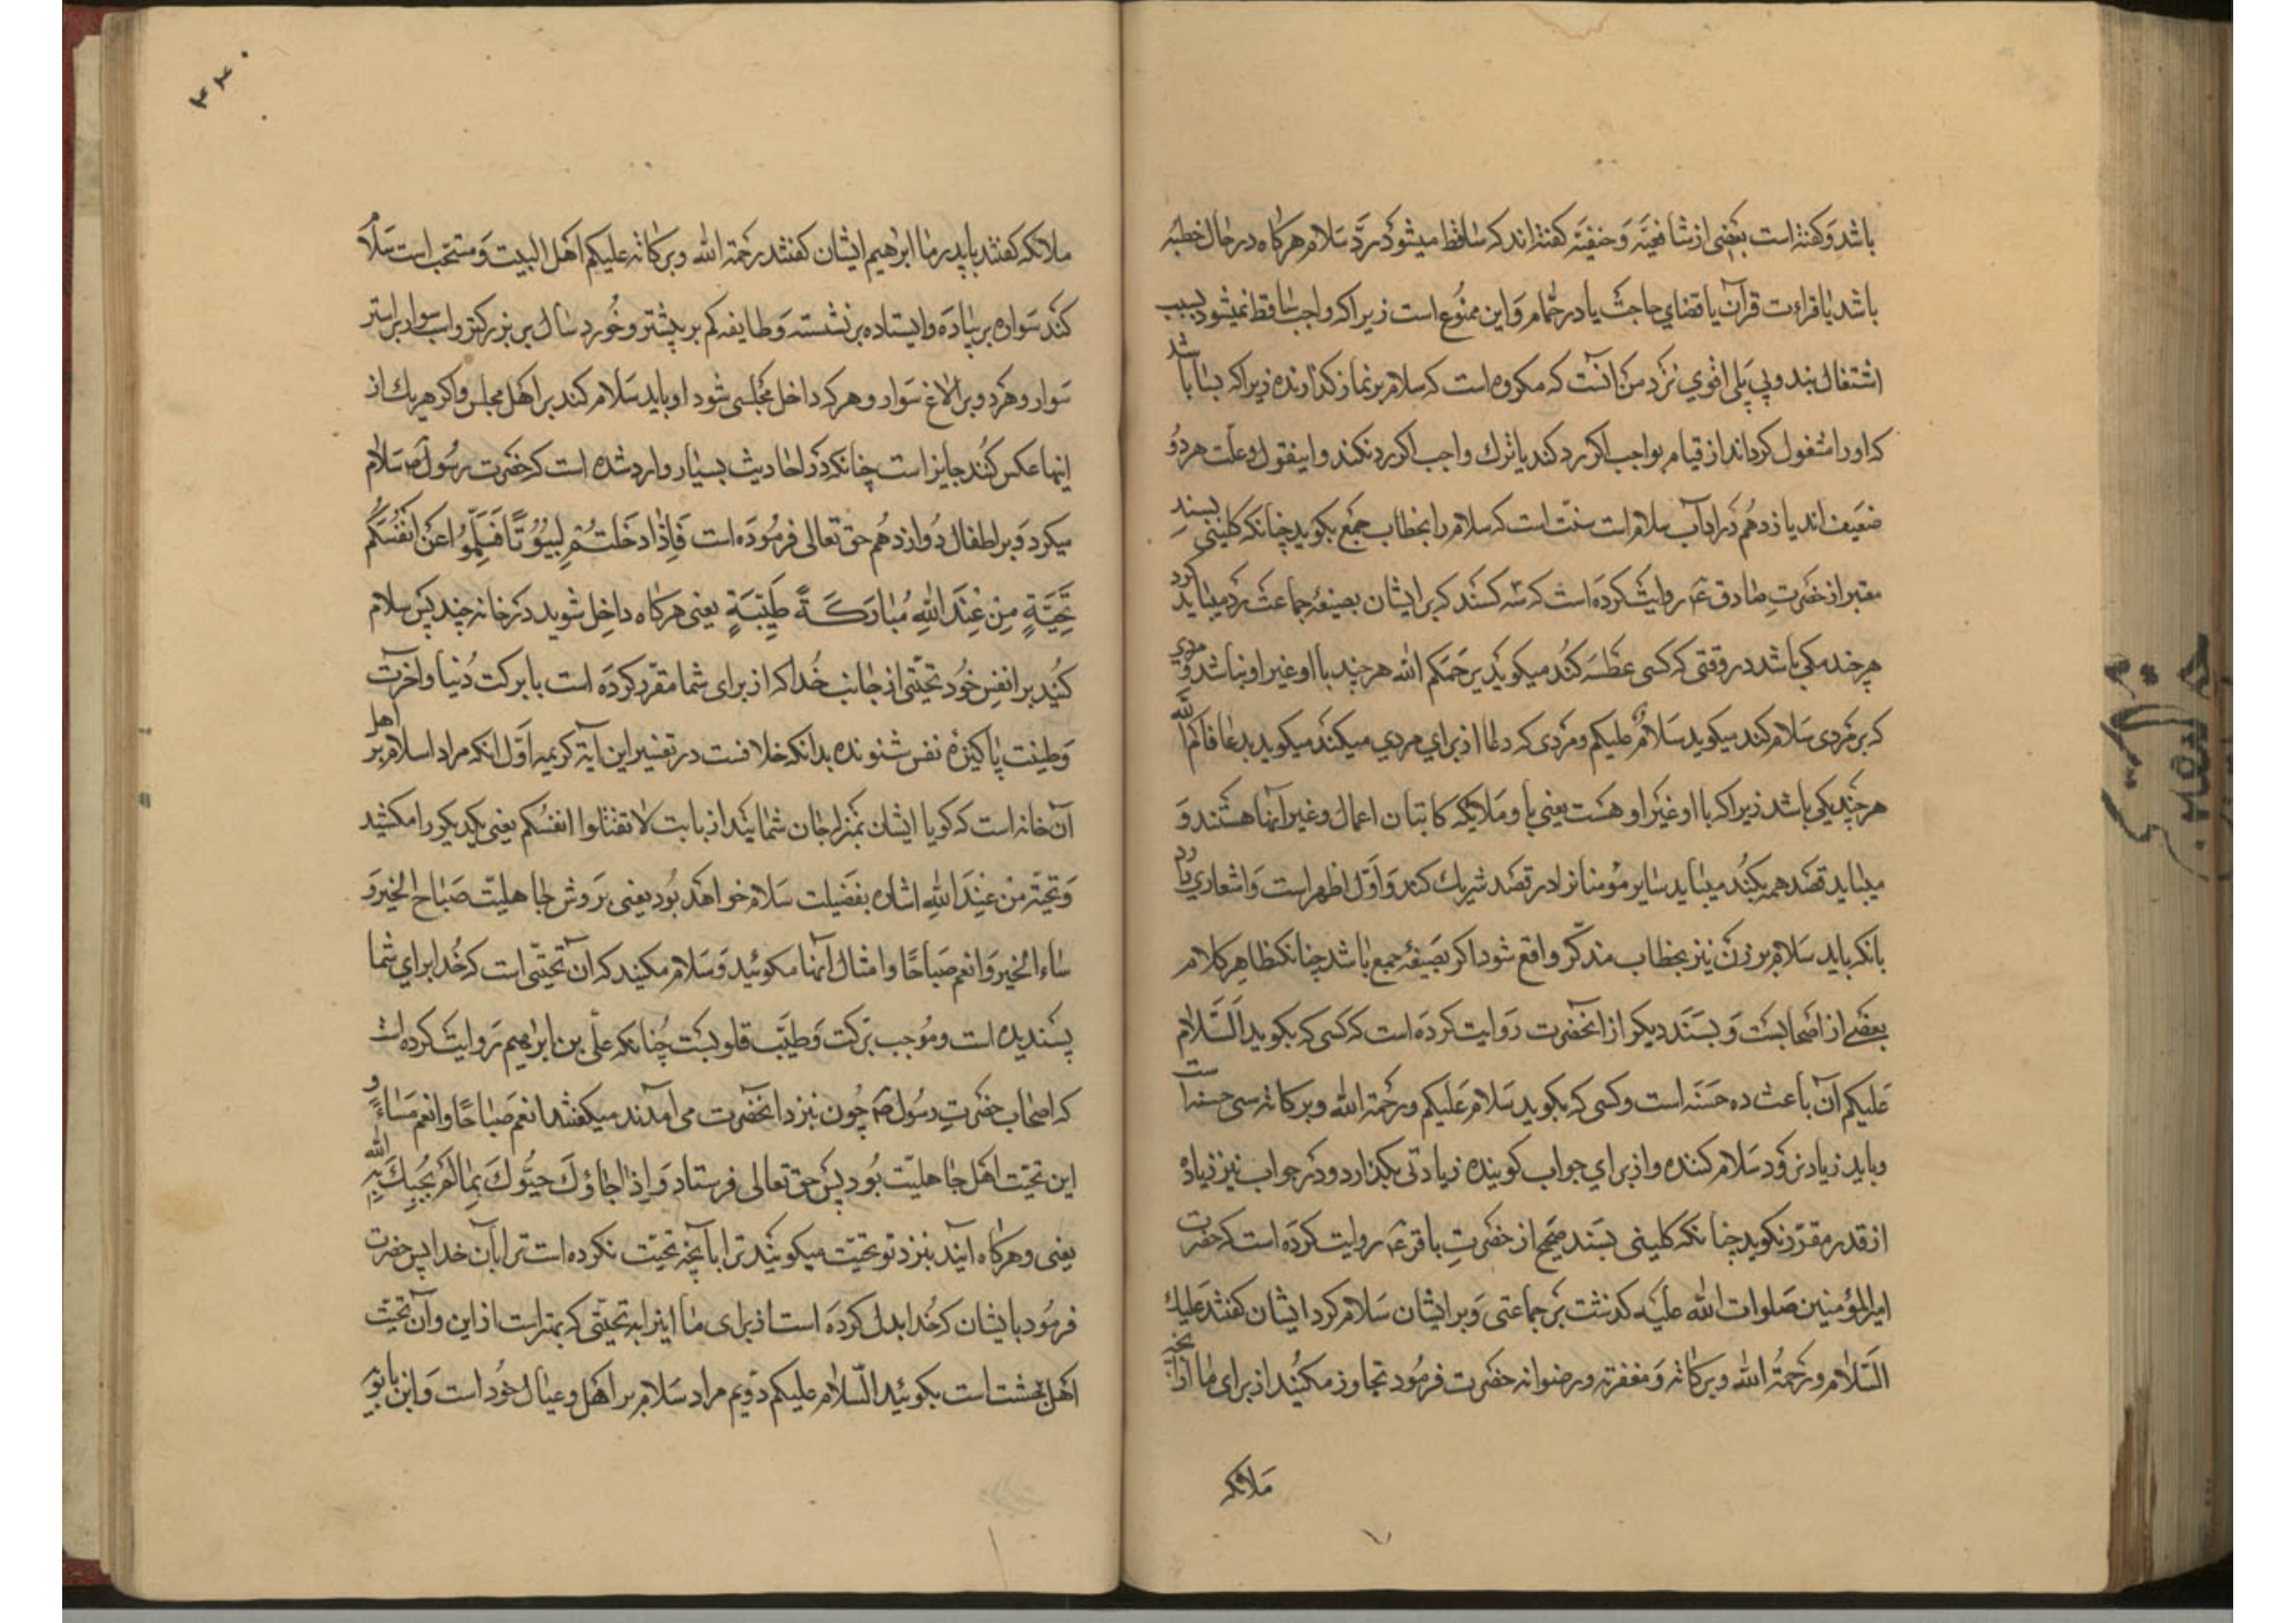 باشد وکفته است بعضی از شافعیّه وَحنفیّه کفته اند که ساقط میشود ردّ سلام هرکاه در حال خطبه
باشد یا قراءت قرآن یا قضای حاجت یا در حمّام وَاین ممنوع است زیرا که واجب ساقط نمیشود بسبب
اشتغال بندوبی بلی اقوی نزد من آنست که مکروه است که سلام بر نماز کذارنده زیرا که بسا باشد
که اورا مشغول کرداند از قیام بواجب اکر رد کند یا ترک واجب اکر رد نکند واینقول وعلّت هردو
ضعیف اند یازدهم در آداب سلام است سنّت است که سلام را بخطاب جمع بکوید چنانکه کلینی بسند
معتبر از حضرت صادق ع روایت کرده است که سه کسند که بر ایشان بصیغه جماعت رد میباید کرد
هرچند یکی باشد در وقتی که کسی عطسه کند میکوید یرحمکم الله هرچند با او غیر او نباشد ومردی
که بر مردی سلام کند میکوید سلامٌ علیکم ومردی که دعا از برای مردی میکند میکوید عافاکم الله
هرچند یکی باشد زیرا که با او غیر او هست یعنی با و ملایکه کاتبان اعمال وغیر آنها هستند وَ
میباید قصد همه بکند میباید سایر مؤمنانرا در قصد شریک کند وَاوّل اظهر است وَاشعاری دارد
بانکه باید سلام بر زن نیز بخطاب مذکّر واقع شود اکر بصیغه جمع باشد چنانکه ظاهر کلام
بعضی از اصحابست وَبسند دیکر از آنحضرت روایت کرده است که کسی که بکوید السّلام
علیکم آن باعث ده حسنه است وکسی که بکوید سلام علیکم ورحمة الله وبرکاته سی حسنه است
وباید زیاد نرود سلام کننده واز برای جواب کوینده زیادتی بکذارد ودر جواب نیز زیاده
از قدر مقرّر نکوید چنانکه کلینی بسند صحیح از حضرت باقر ع روایت کرده است که حضرت
امیر المؤمنین صلوات الله علیه کذشت بر جماعتی وَبر ایشان سلام کرد ایشان کفتند علیک
السّلام ورحمةُ الله وبرکاته وَمغفرته ورضوانه حضرت فرمود تجاوز مکنید از برای ما از آنچه
ملائکه
۳۳۰
ملائکه کفتند بپدر ما ابراهیم ایشان کفتند رحمة الله وبرکاته علیکم اهل البیت وَمستحب است سلام
کند سواره بر پیاده وایستاده بر نشسته وَطایفه کم بر بیشتر وخورد سال بر بزرکتر واسب سوار بر استر
سوار وهردو بر الاغ سوار وهرکه داخل مجلسی شود او باید سلام کند بر اهل مجلس واکر هریک از
اینها عکس کنند جایز است چنانکه در احادیث بسیار وارد شده است که حضرت رسول ص سلام
میکرد وَبر اطفال دوازدهم حق تعالی فرموده است فَاِذَا دَخَلْتُمْ بُيُوتًا فَسَلِّمُوا عَن اَنفُسِكُمْ
تَحِيَّةٍ مِنْ عِنْدَ اللهِ مُبَارَكَةً طَيِّبَةٍ یعنی هرکاه داخل شوید در خانه چند پس سلام
کنید بر انفس خود تحیّتی از جانب خدا که از برای شما مقرّر کرده است با برکت دنیا وآخرت
وَطینت پاکیزه نفس شنونده بدانکه خلافست در تفسیر این آیه کریمه اوّل انکه مراد اسلام بر اهل
آن خانه است که کویا ایشان بمنزله جان شمایند از بابت لا تقتلوا انفسکم یعنی یکدیکر را مکشید
وَتحیّة مِنْ عِنْدَ اللهِ اشاره بفضیلت سلام خواهد بود یعنی بروش جاهلیّت صباح الخیر وَ
مساء الخیر وَانعم صباحًا وامثال آنها مکوئید وَسلام مکنید که آن تحیّتی است که خدا برای شما
پسندیده است وموجب برکت وَطیّب قلوبست چنانکه علی بن ابراهیم روایت کرده است
که اصحاب حضرت رسول ص چون بنزد آنحضرت می آمدند میکفتند انعم صباحًا وانعم مساءً و
این تحیّت اهل جاهلیّت بود پس حق تعالی فرستاد وَاِذا جَاؤُكَ حَيَّوْكَ بِمَا لَمْ يُحَيِّكَ بِهِ الله
یعنی وهرکاه آیند بنزد تو تحیّت میکویند ترا بآنچه تحیّت نکرده است ترا بآن خدا پس حضرت
فرمود بایشان که خدا بدل کرده است از برای ما اینرا به تحیّتی که بهتر است از این وآن تحیّت
اهل بهشت است بکوئید السّلام علیکم دویم مراد سلام بر اهل وعیال خود است وَابن بابویه